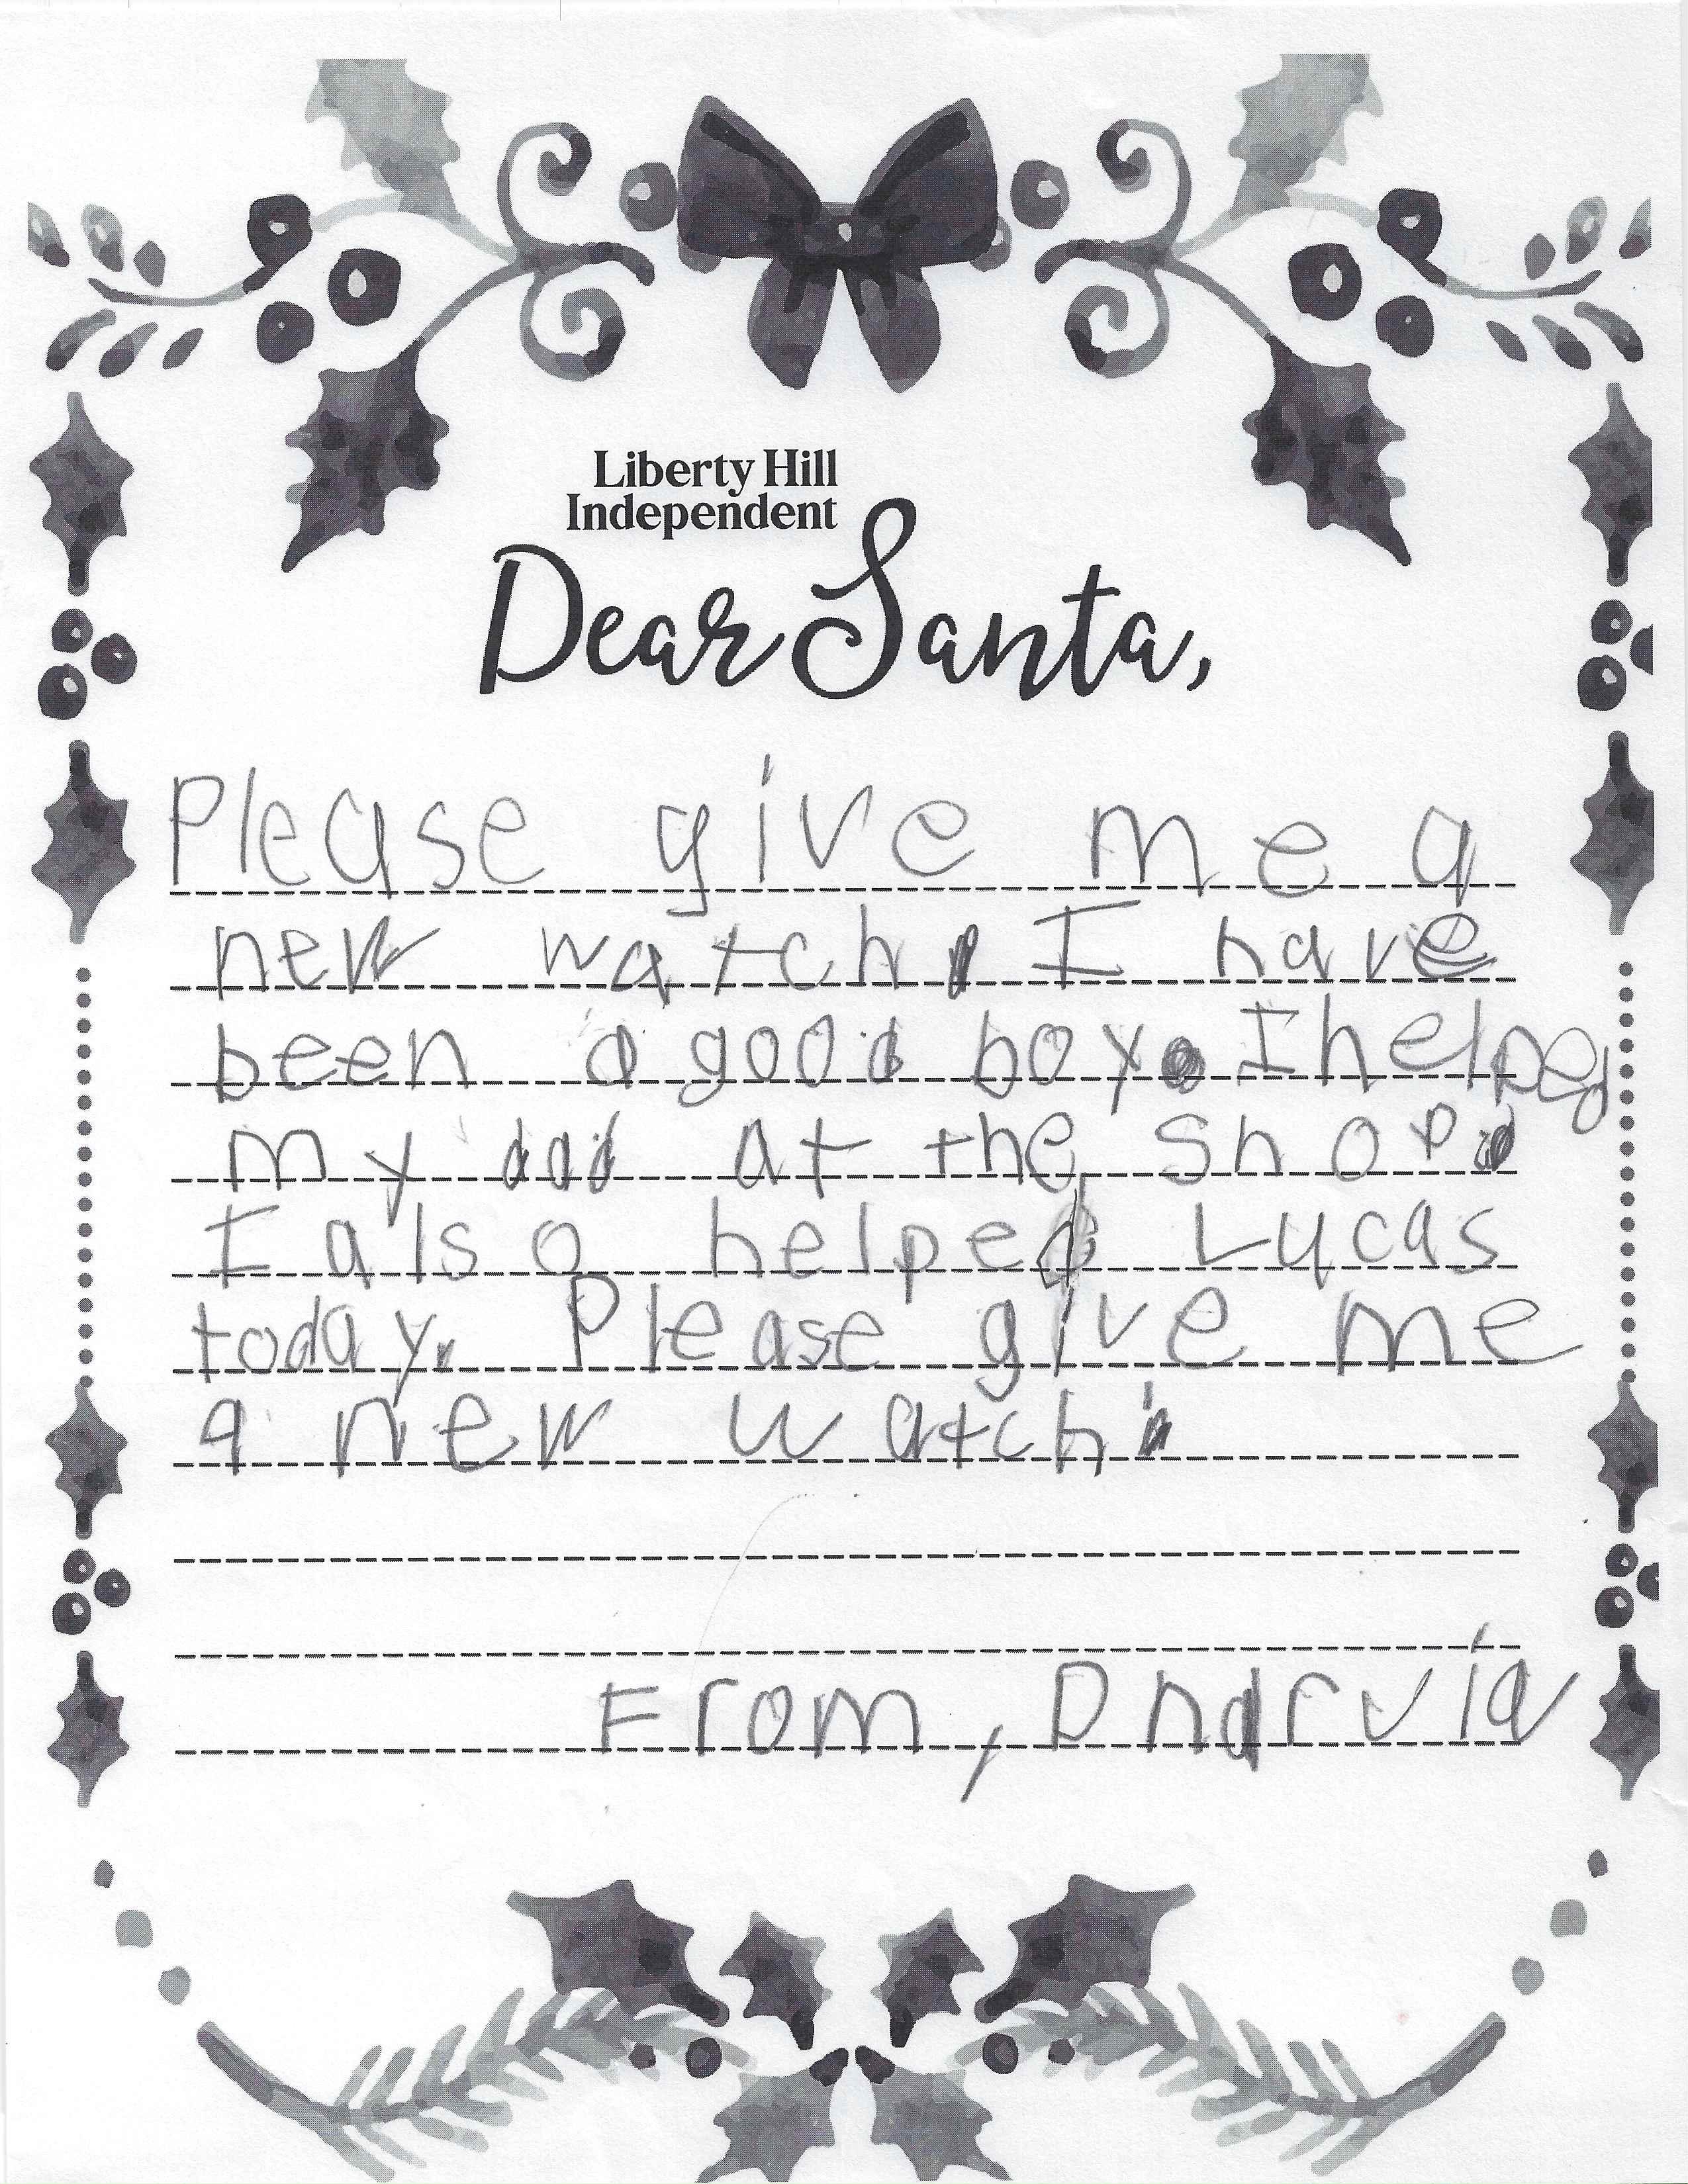 Liberty Hill
Independent
Dear Santa,
Please give me a
new watch. I have
been a good boy. I helped
my dad at the shop.
I also helped Lucas
today. Please give me
a new watch.
From,